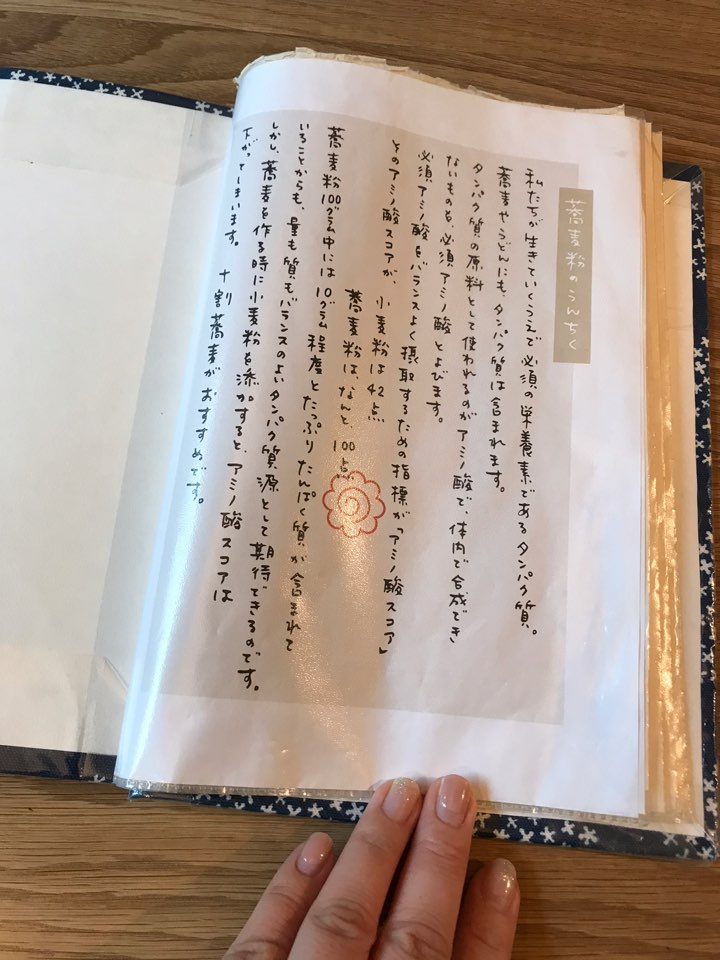 蕎麦粉のうんちく
私たちが生きていくうえで必須の栄養素であるタンパク質。
蕎麦やうどんにも、タンパク質は含まれます。
タンパク質の原料として使われるのがアミノ酸で、体内で合成でき
ないものを、必須アミノ酸とよびます。
必須アミノ酸をバランスよく摂取するための指標が「アミノ酸スコア」
そのアミノ酸スコアが、小麦粉は42点
蕎麦粉は、なんと、100点
蕎麦粉100グラム中には10グラム程度とたっぷりたんぱく質が含まれて
いることからも、量も質もバランスのよいタンパク質源として期待できるのです。
しかし、蕎麦を作る時に小麦粉を添加すると、アミノ酸スコアは
下がってしまいます。十割蕎麦がおすすめです。